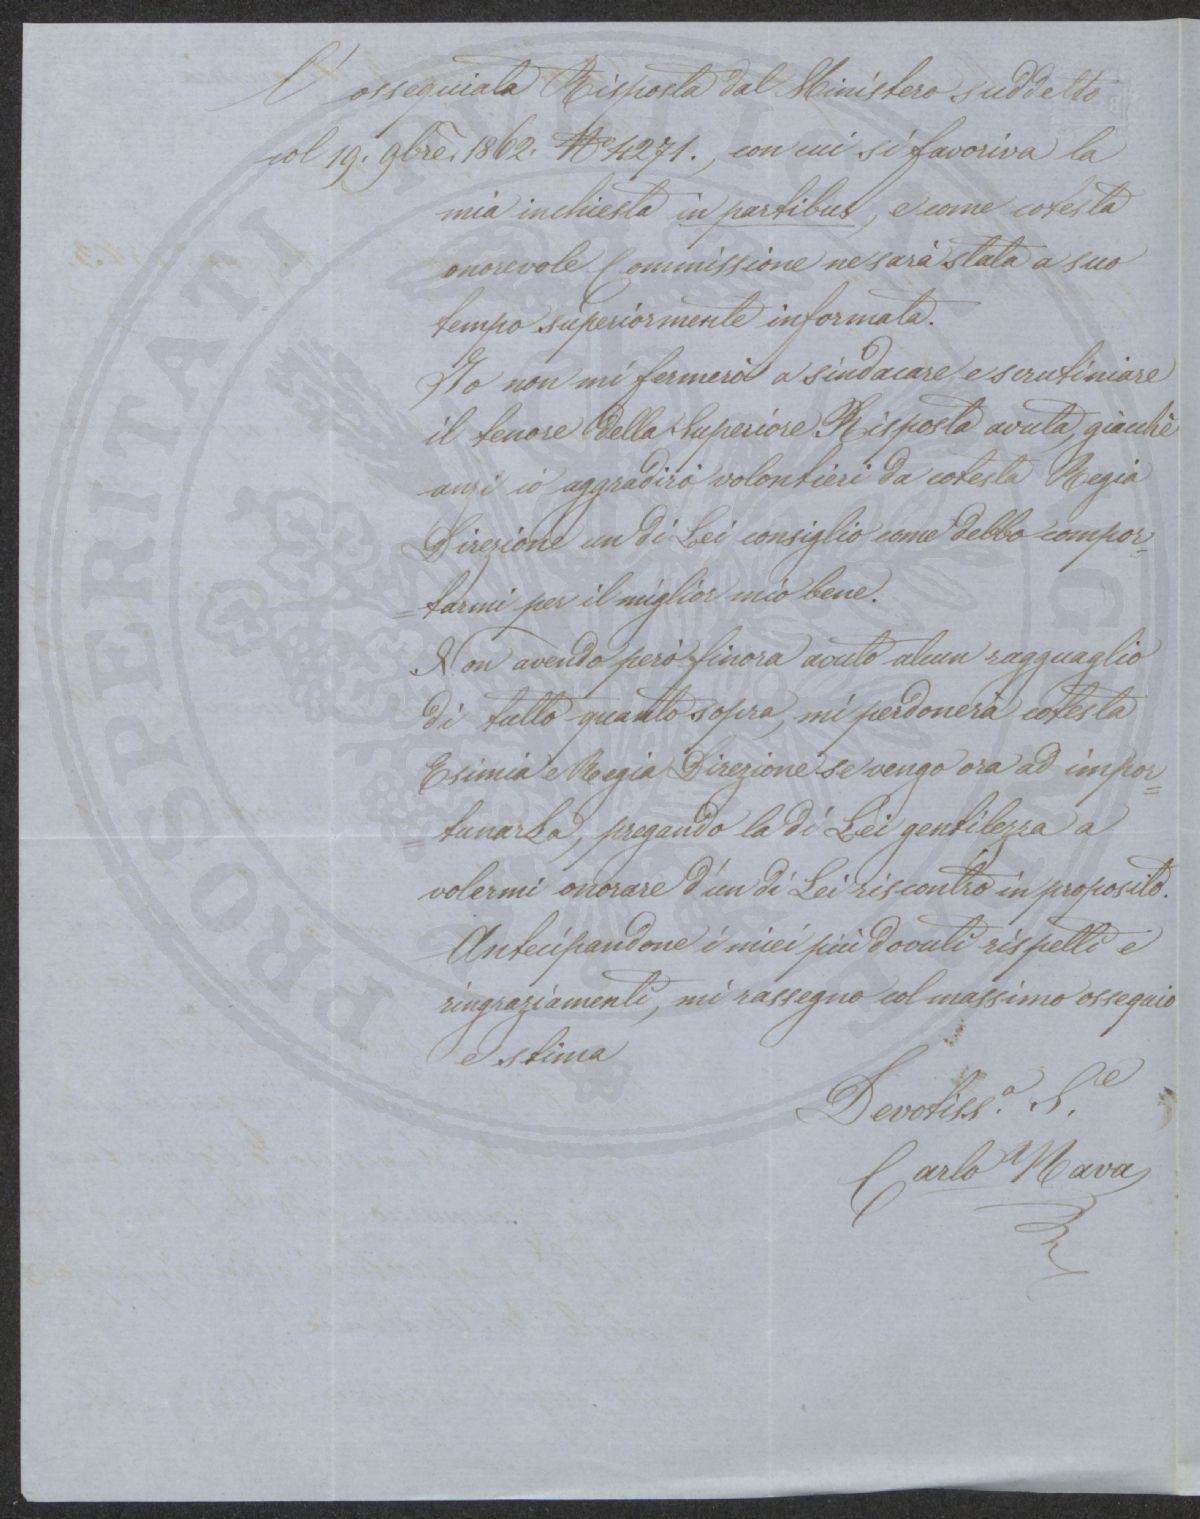 L'ossequiata Risposta dal Ministero suddetto
col 19. 9bre. 1862. No 4271., con cui si favoriva la
mia inchiesta in partibus, e come cotesta
onorevole Commissione ne sarà stata a suo
tempo superiormente informata.
Io non mi fermerò a sindacare e scrutiniare
il tenore della Superiore Risposta avuta, giacchè
anzi io aggradirò volontieri da cotesta Regia
Direzione un di Lei consiglio come debbo compor=
=tarmi per il miglior mio bene.
Non avendo però finora avuto alcun ragguaglio
di tutto quanto sopra, mi perdonerà cotesta
Esimia e Regia Direzione se vengo ora ad impor=
=tunarLa, pregando la di Lei gentilezza a
volermi onorare d'un di Lei riscontro in proposito.
Antecipandone i miei più dovuti rispetti e
ringraziamenti, mi rassegno col massimo ossequio
e stima
Devotiss.o S.re
Carlo Nava
PROSPERITATI